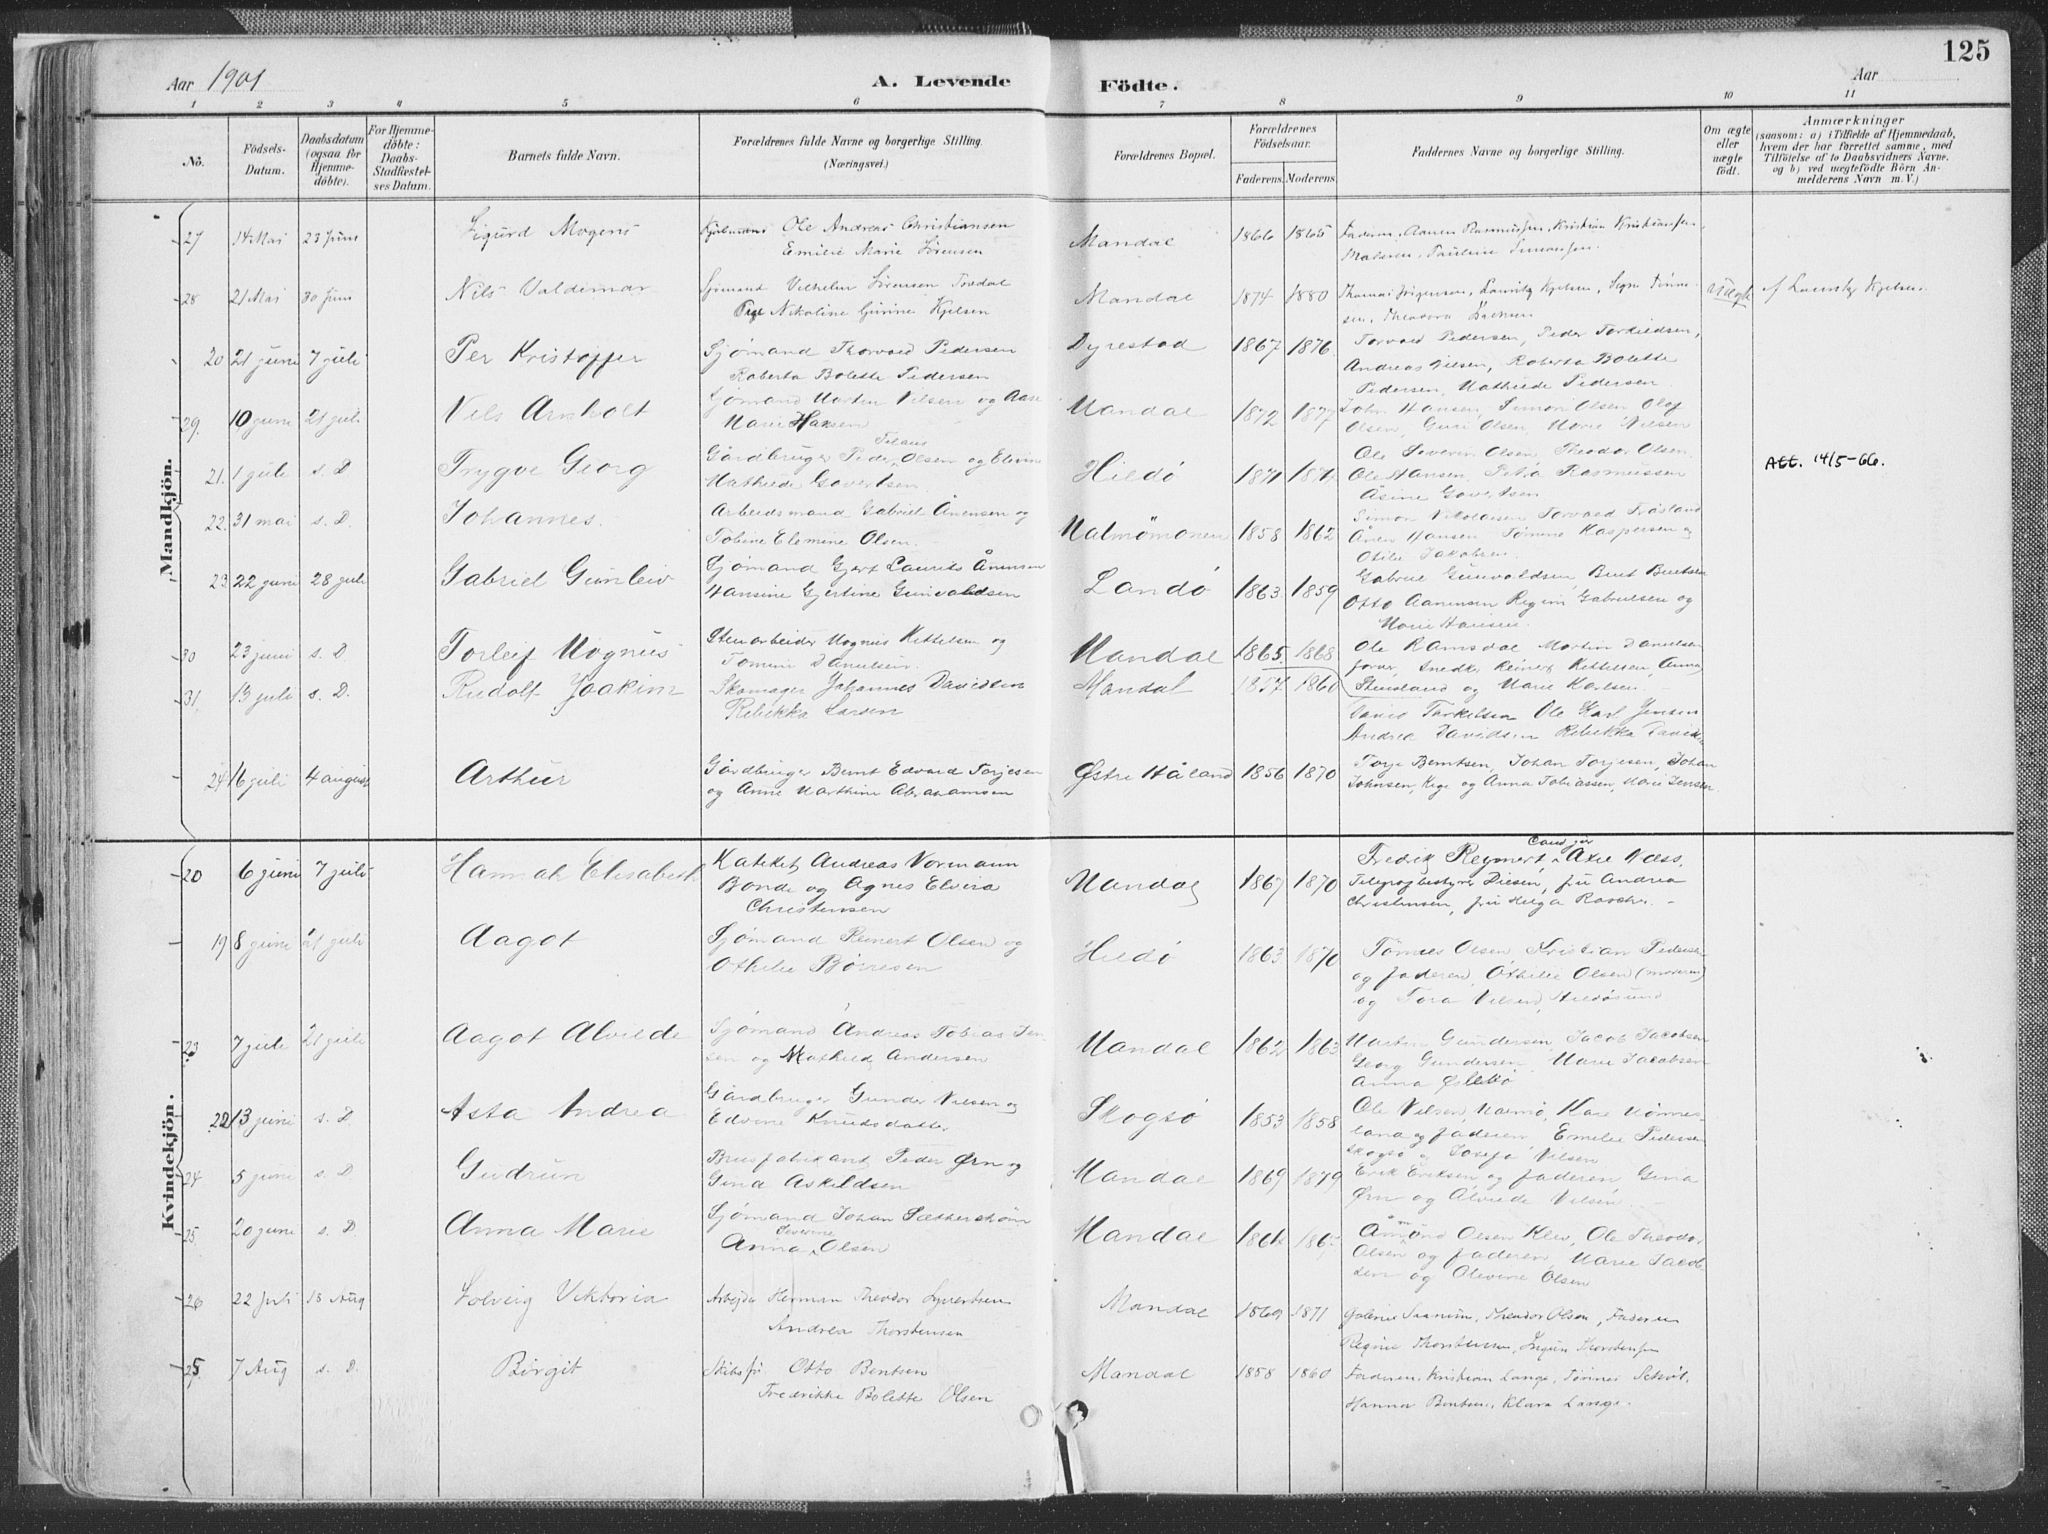 Aar 1901
A. Levende Födte.
Aar
125
1 2 3 4 5 6 7 8 9 10 11
No.
Födsels-Datum.
Daabsdatum (ogsaa for Hjemmedöbte).
For Hjemmedöbte: Daabs-Stadfæstelses Datum.
Barnets fulde Navn.
Forældrenes fulde Navne og borgerlige Stilling. (Næringsvei.)
Forældrenes Bopæl.
Forældrenes Födselsaar.
Faderens. Moderens.
Faddernes Navne og borgerlige Stilling.
Om ægte eller uægte födt.
Anmærkninger
(saasom: a) i Tilfælde af Hjemmedaab, hvem der har forrettet samme, med Tilföielse af to Daabsvidners Navne, og b) ved uægtefödte Börn Anmelderens Navn m. V.)
Mandkjön.
27 14 Mai 23 Juni Sigurd Mogens Ole Andreas Christiansen Mandal 1866 1865 Faderen, Aanen Rasmussen, Kristian Kristiansen,
Emilie Marie Sörensen Pauline Simonsen.
28 21 Mai 30 Juni Nils Valdemar Sjömand Vilhelm Sörensen Mandal 1874 1880 Thomas Jörgensen, Lauritz Kjelsen, uægte af Lauritz Kjelsen
Pige Nikoline Gurine Kjelsen Theodora
20 21 juni 7 juli Per Kristoffer Sjömand Thorvald Pedersen Dyrestad 1867 1876 Torvald Pedersen, Peder Torkildsen,
Roberta Bolette Pedersen Andreas Nilsen, Roberta Bolette
Pedersen, Mathilde Pedersen.
29. 10 juni 21 juli Nils Arnholt Sjömand Martin Nilsen og Aase Mandal 1872 1877 John Hansen, Simon Olsen, Olaf
Marie Hansen Olsen, Guri Olsen, Marie Nilsen
21. 1 juli s. D Trygve Georg Gårdbruger Peder Olsen og Hildø 1871 Ole Severin Olsen, Theodor Olsen, Att. 14/5-66.
Mathilde Govertsen Ole Hansen, Rasmussen
Åsine Govertsen
22. 31 mai s. D. Johannes. Arbeidsmand Gabriel Ånensen og Malmömonen 1858 1862 Simon Nikolaisen Torvald
Tobine Elemine Olsen. Ånen Hansen Tömine Kaspersen og
Otilie Jakobsen.
23 22 juni 28 juli Gabriel Gunleiv Sjömand Gjert Laurits Ånensen Landö 1863 1859 Gabriel Gunvaldsen, Berit Bentsen
Hansine Gjertine Gunvaldsen Otto Aanensen Regine Gabrielsen og
Marie Hansen.
30 23 juni s. D Torleif Magnus Stenarbeider Magnus Kittelsen og Mandal 1865. 1868 Ole Ramsdal Martin Danielsen
Tomine Danielsen. Reinert Kittelsen, Anna
31. 13 juli s. D. Rudolf Joakim Skomager Johannes Davidsen Mandal 1857 1860 Stensland og Marie Karlsen.
Rebekka Larsen David Tarkelsen Ole Karl Jensen
Andrea Davidsen Rebekka
24 16 juli 4 august Arthur Gårdbruger Bernt Edvard Torjesen Østre Håland 1856 1870 Torje Berntsen, Johan Torjesen, Johan
og Anne Marthine Abrahamsen Johnsen, og Anna Tobiassen, Marie Jensen.
Kvindekjön.
20 6 juni 7 juli Hannah Elisabeth Kateket Andreas Normann Mandal 1867 1870 Fredrik Reymert, Cand jur Axel Næss,
Bonde og Agnes Elvira Telegrafbestyrer Diesen, fru Andrea
Christensen Christensen, fru Helga Rasch.
19 8 juni 21 juli Aagot Sjömand Reinert Olsen og Hildø 1863 1870 Tönnes Olsen, Kristian Pedersen
Othilie Börresen og faderen, Othilie Olsen (moderen)
og Tora Nilsen, Hildösund
23 7 juli 21 juli Aagot Alvilde Sjömand Andreas Tobias Jen- Mandal 1862 1863 Martin Gundersen, Jacob Jacobsen
sen og Mathilde Andersen Georg Gundersen Marie Jacobsen
Anna
22 13 juni s. D Asta Andrea Gårdbruger Gunder Nilsen og Skogsö 1853 1858 Ole Nilsen Malmö, Kare Mönnes-
Edvine Knudsdatter land og faderen, Emelie Pedersen
Skogsö og Josefa Nilsen
24 5 juni s. D Gudrun Brusfabrikant Peder Ørn og Mandal 1869 1879 Erik Eriksen og faderen Gina
Gina Askildsen Ørn og Alvilde Nilsen
25 20 juni s. D. Anna Marie Sjömand Johan Mandal 186 Åmund Olsen Klev, Ole Theodor
Anna Severine Olsen Olsen og faderen, Marie Jacob-
sen og Olevine Olsen
26 22 Juli 18 Aug Solveig Viktoria Arbejder Herman Theodor Syvertsen Mandal 1869 1871 Theodor Olsen, Faderen
Andrea Thorstensen Regine Thorstensen,
25 7 Aug s. D. Birgit Otto Bentsen Mandal 1858 1860 Faderen, Kristian Lange,
Fredrikke Bolette Olsen Hanna Bentsen, Klara Lange.